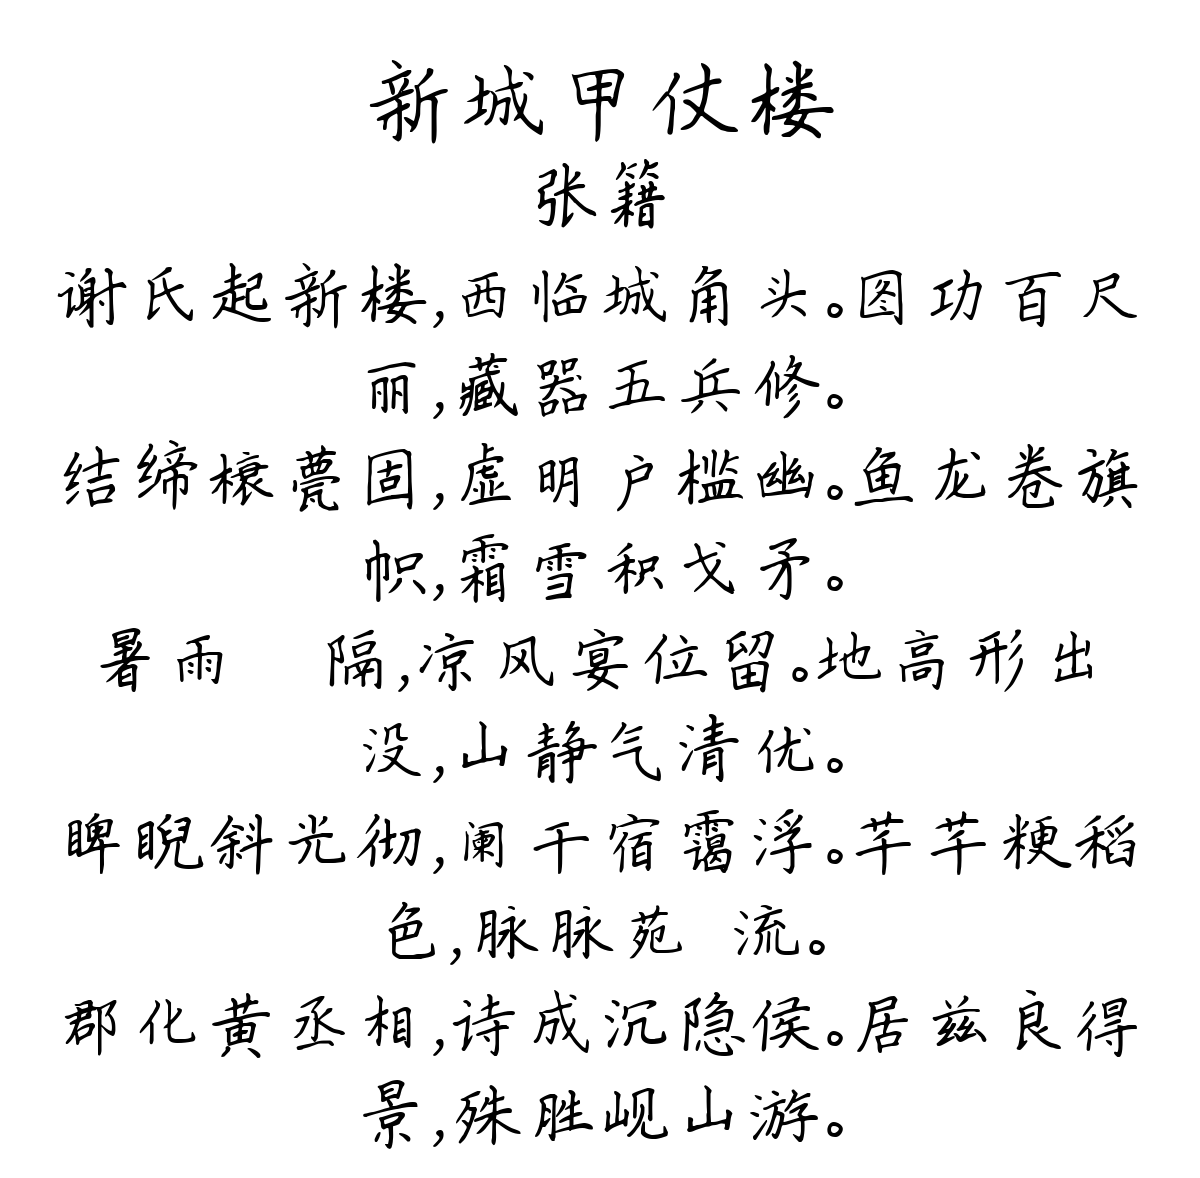 新城甲仗楼
张籍
谢氏起新楼,西临城角头。图功百尺
丽,藏器五兵修。
结缔榱甍固,虚明户槛幽。鱼龙卷旗
帜,霜雪积戈矛。
暑雨 隔,凉风宴位留。地高形出
没,山静气清优。
睥睨斜光彻,阑干宿霭浮。芊芊粳稻
色,脉脉苑 流。
郡化黄丞相,诗成沉隐侯。居兹良得
景,殊胜岘山游。